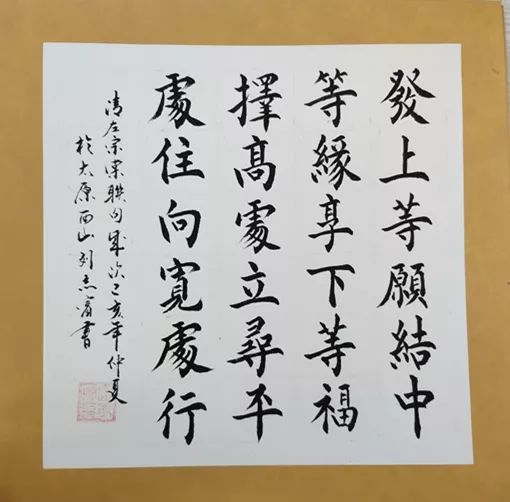 發上等願結中
等緣享下等福
擇高處立尋平
處住向寬處行
清左宗棠联句歲次己亥年仲夏
於太原西山刘志有書